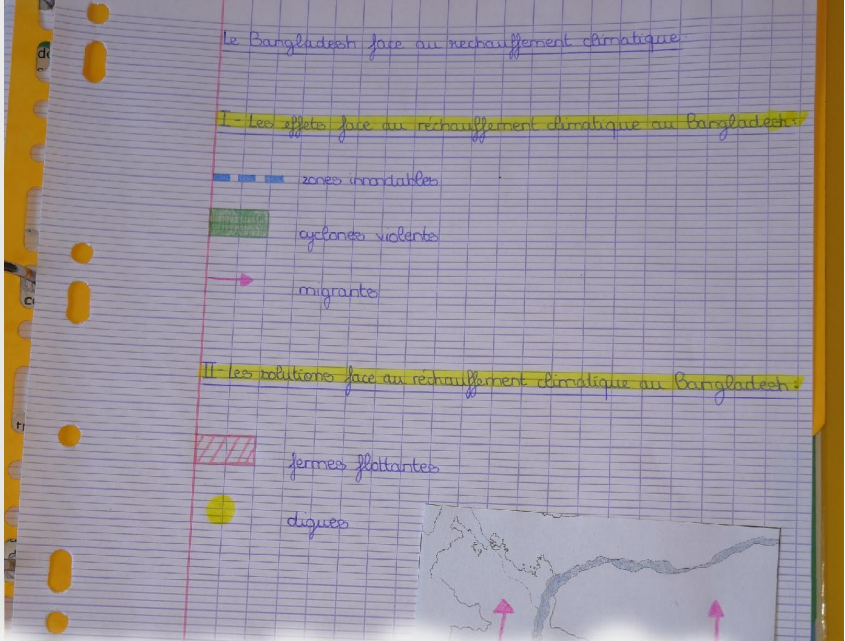 Le Bangladesh face au rechauffement climatique.
I - Les effets face au réchauffement climatique au Bangladesh:
zones innondables
cyclones violents
migrants
II - Les solutions face au réchauffement climatique au Bangladesh:
fermes flottantes
digues